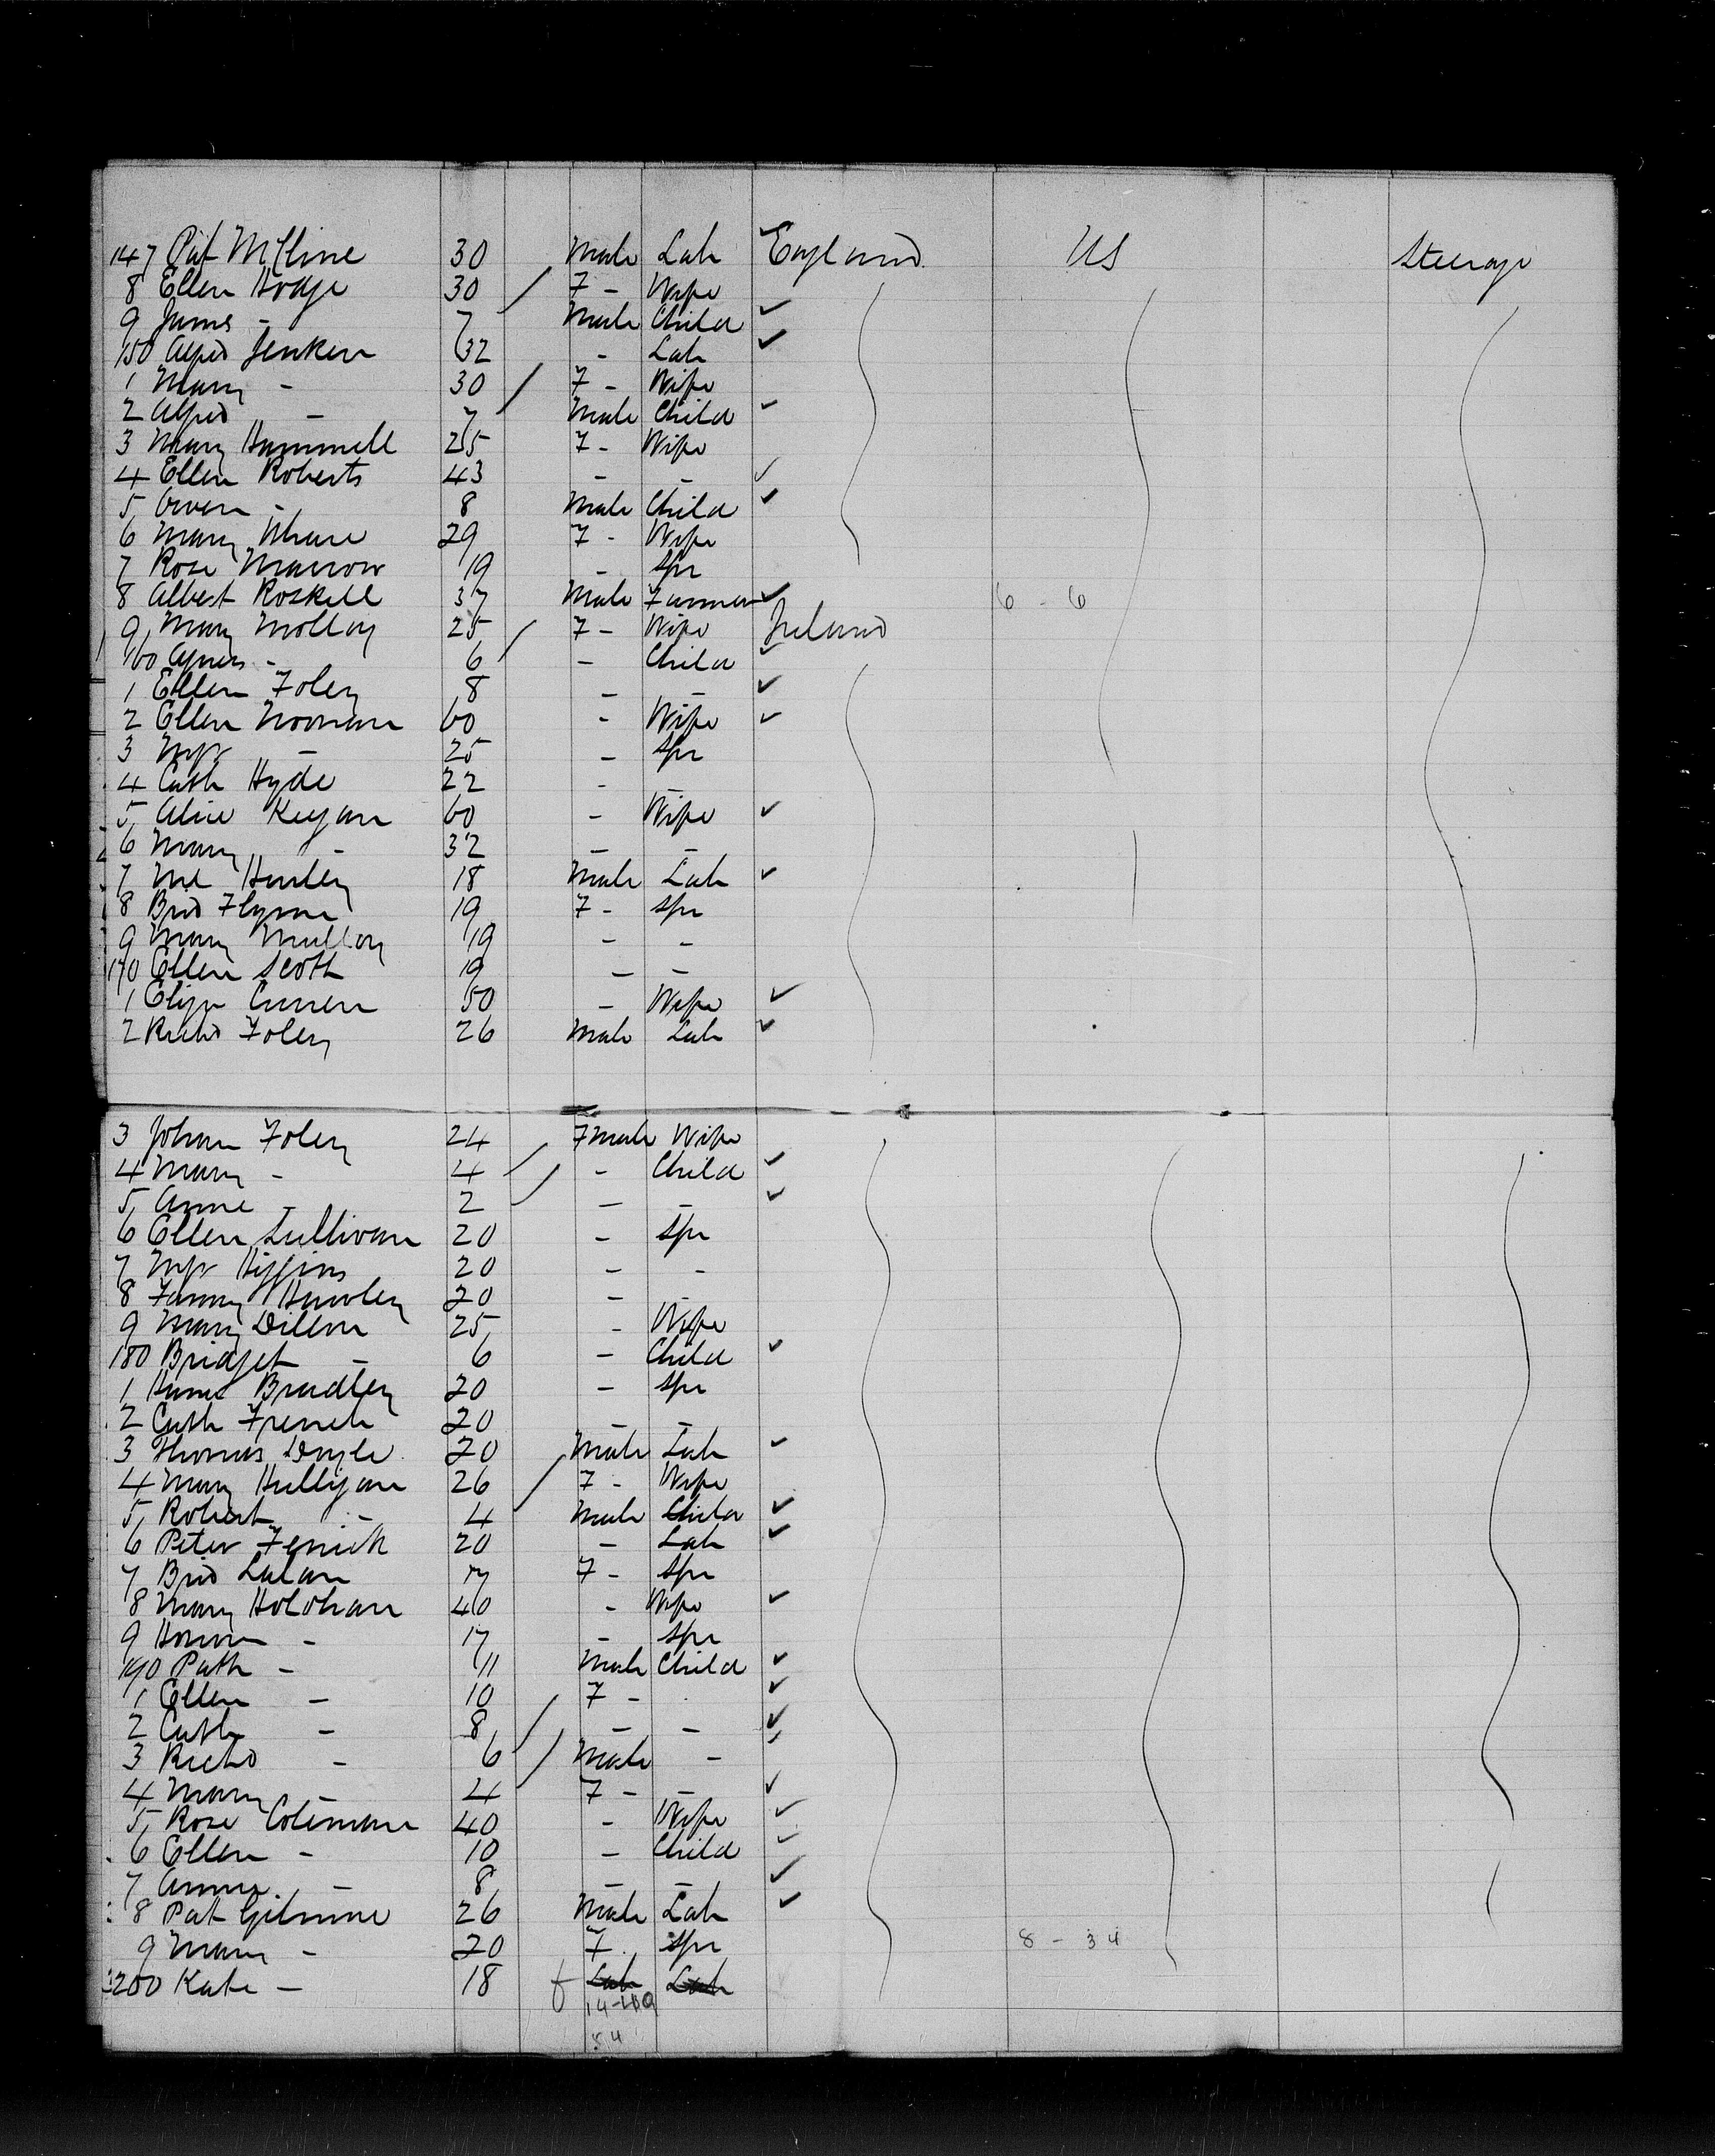 147 Pat McCline 30 Male Lab England US Steerage
8 Ellen Hodge 30 F - Wife
9 James - 7 Male Child
150 Alfred Jenken 32 - Lab
1 Mary - 30 F - Wife
2 Alfred - 7 Male Child
3 Mary Hammell 25 F - Wife
4 Ellen Roberts 43 - -
5 Owen - 8 Male Child
6 Mary 29 F - Wife
7 Rose Marrow 19 - Spr
8 Albert Roskell 37 Male Farmer 6 - 6
9 Mary Molloy 25 F - Wife Ireland
160 Agnes - 6 - Child
1 Ellen Foley 8 - -
2 Ellen Noonan 60 - Wife
3 Mgr - 25 - Spr
4 Cath Hyde 22 - -
5 Alice Keegan 60 - Wife
6 Mary - 32 - -
7 Hurley 18 Male Lab
8 Brid Flynn 19 F - Spr
9 Mary Mulloy 19 - -
170 Ellen Scott 19 - -
1 Eliza Curren 50 - Wife
2 Richd Foley 26 Male Lab
3 Johan Foley 24 Fmale Wife
4 Mary - 4 - Child
5 Anne - 2 - -
6 Ellen Sullivan 20 - Spr
7 Mgr Higgins 20 - -
8 Fanny Hawley 20 - -
9 Mary Dillon 25 - Wife
180 Bridget - 6 - Child
1 Bradley 20 - Spr
2 Cath French 20 - -
3 Thomas Doyle 20 Male Lab
4 Mary Hulligan 26 F - Wife
5 Robert - 4 Male Child
6 Peter 20 - Lab
7 Brid Lalan 17 F - Spr
8 Mary Holohan 40 - Wife
9 Honora - 17 - Spr
190 Path - 11 Male Child
1 Ellen - 10 F -
2 Cath - 8 - -
3 Richd - 6 Male -
4 Mary - 4 F - -
5 Rose Coleman 40 - Wife
6 Ellen - 10 - Child
7 Annie - 8 - -
8 Pat Gilmore 26 Male Lab
9 Mary - 20 F. Spr 8 - 34
200 Kate - 18 f Lab Lab
14-40
54